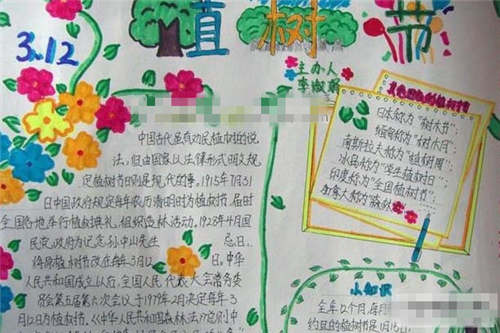 3.12
直树节
主办人
李淑
中国古代虽有劝民植树的说
法,但由国家以法律形式明文规
定植树节日则是现代的事,1915年7月31
日中国政府规定每年农历清明时为植树节,届时
全国各地举行植树典礼,组织造林活动,1928年4月国
民党政府为纪念孙中山先生 忌日、
将原植树节改在每年3月12日,中华
人民共和国成立以后,全国人民代表大会常务委
员会第五届六次会议于1979年2月决定每年3
月12日为植树节,《中华人民共和国森林法》定则中
日本称为“树木节”;
缅甸称为“树木月”;
南斯拉夫称为“植树周”;
冰岛称为“学生植树日”;
印度称为“全国植树节”;
加拿大称为“森林
小知识
全年12个月,每月
约旦的植树节是